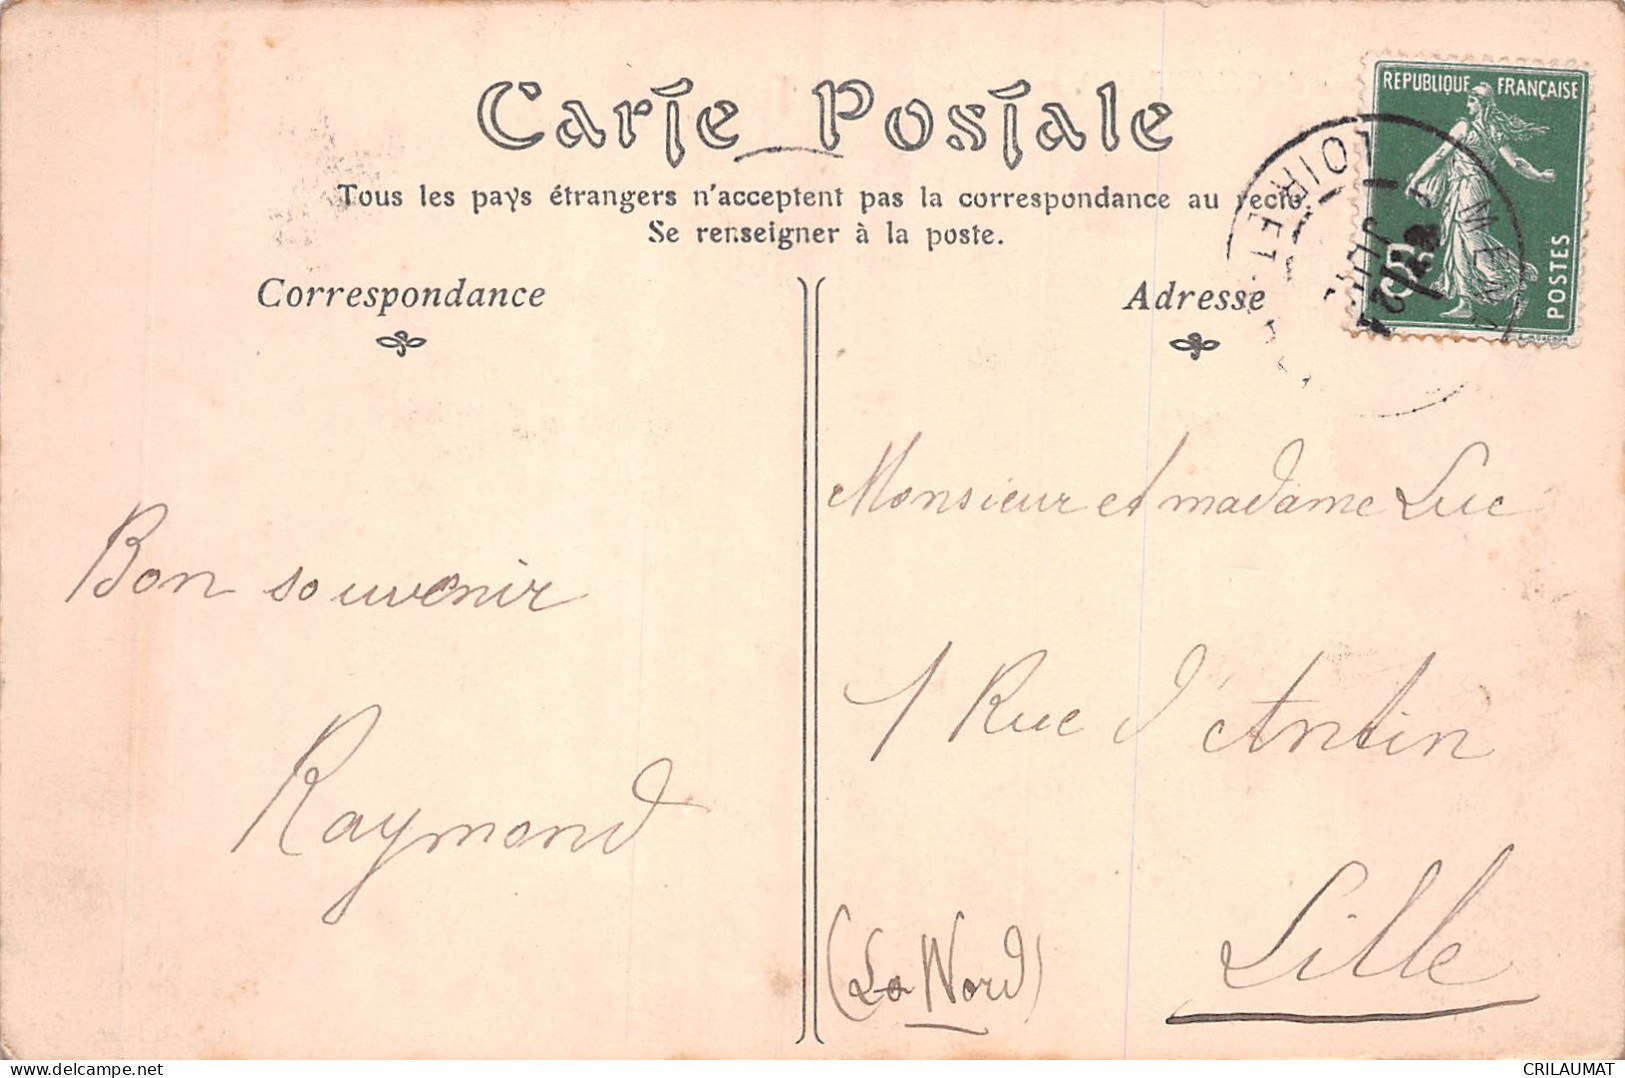 Carte Postale
Tous les pays étrangers n'acceptent pas la correspondance au recto.
Se renseigner à la poste.
Correspondance
Adresse
REPUBLIQUE FRANÇAISE
POSTES
5
LOIRET
Bon souvenir
Raymond
Monsieur et madame Luc
1 Rue d'Antin
Lille
(Le Nord)
delcampe.net
CRILAUMAT